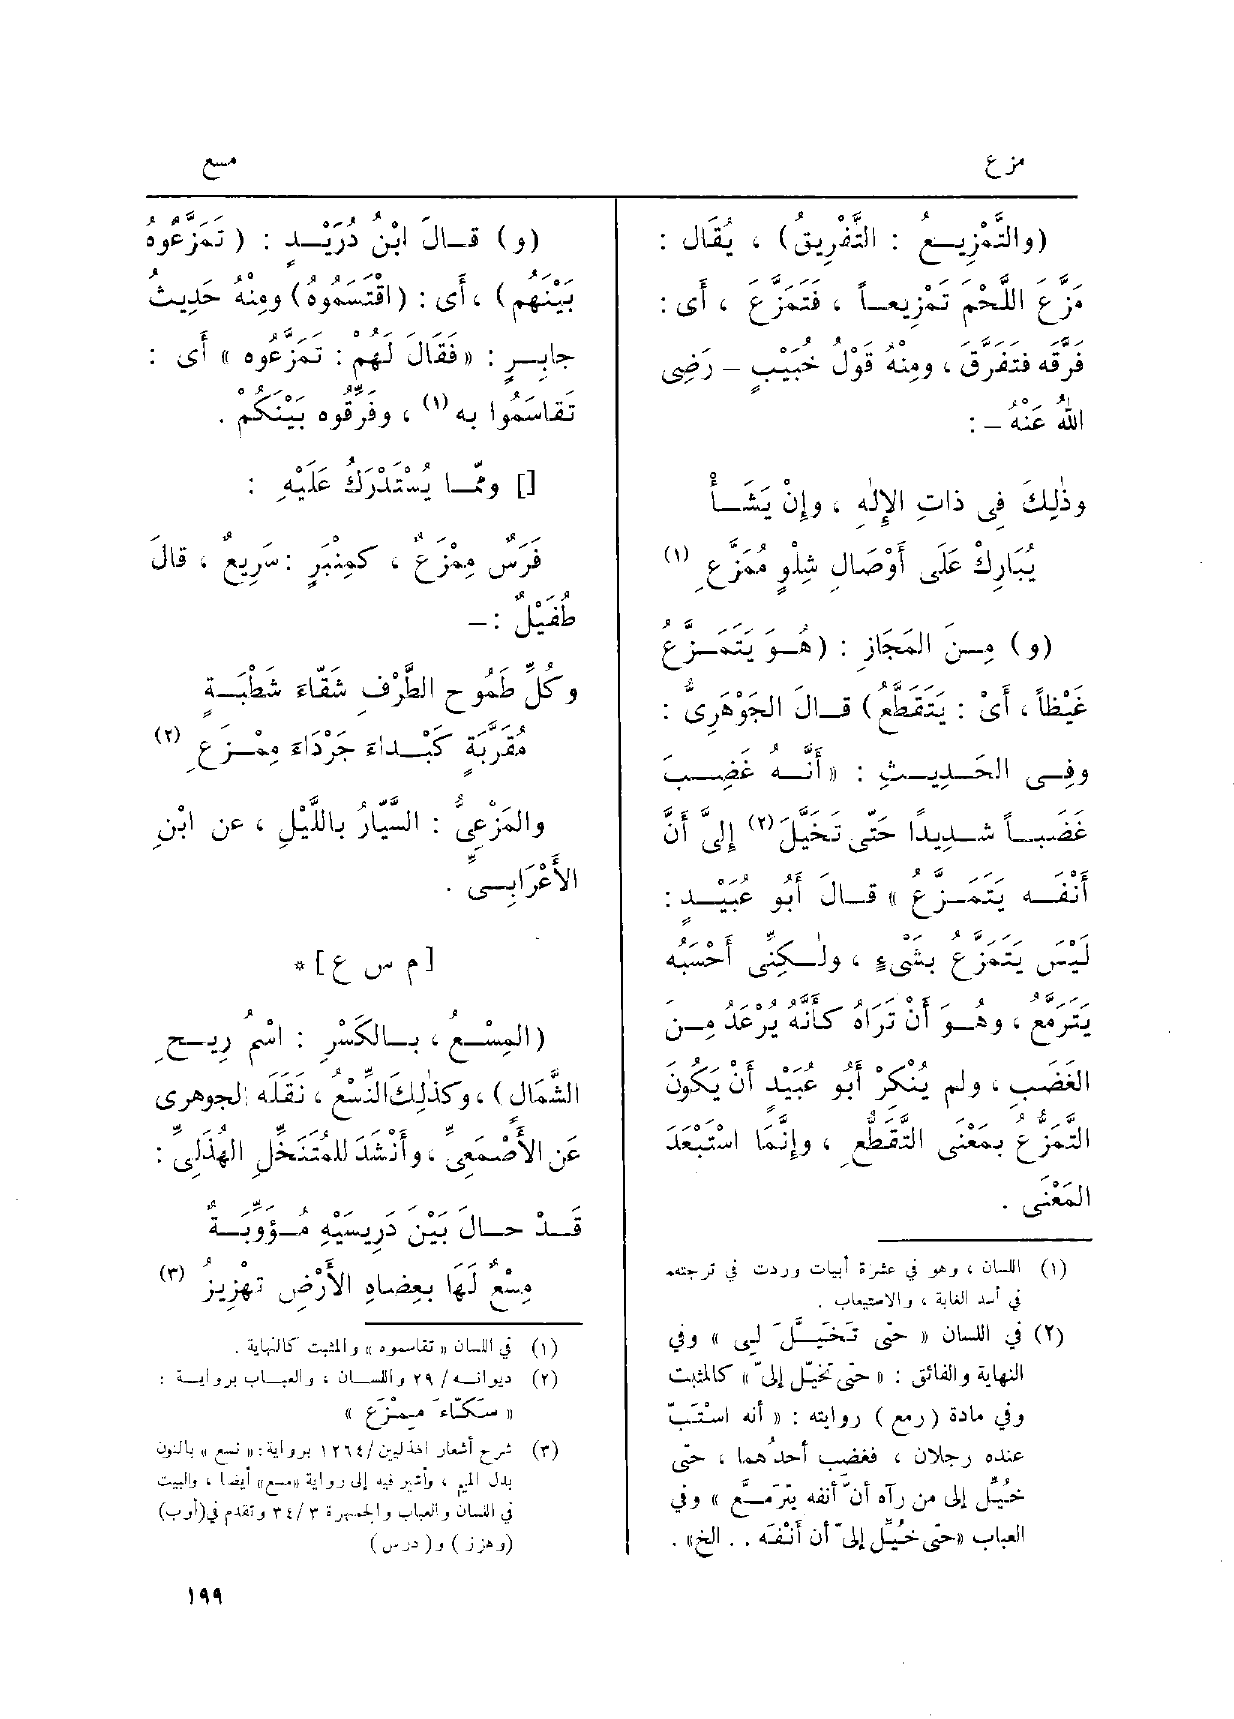 مزع
مسع
(والتَّمْزِيــعُ : التَّفْرِيقُ) ، يُقَال :
مَزَّعَ اللَّحْمَ تَمْزِيعــاً ، فَتَمَزَّعَ ، أَى :
فَرَّقَه فتَفَرَّقَ ، ومِنْهُ قَوْلُ خُبَيْبٍ – رَضِى
اللهُ عَنْهُ – :
وذٰلِكَ فِى ذاتِ الإِلٰهِ ، وإِنْ يَشَــأْ
يُبَارِكْ عَلَى أَوْصَالِ شِلْوٍ مُمَزَّعِ (١)
(و) مِــنَ المَجَازِ : (هُــو يَتَمَــزَّعُ
غَيْظاً ، أَىْ : يَتَقَطَّعُ) قَــالَ الجَوْهَرِىُّ :
وفِــى الحَــدِيــثِ : «أَنَّــهُ غَضِــبَ
غَضَبــاً شَــدِيدًا حَتَّى تَخَيَّلَ (٢) إِلىَّ أَنَّ
أَنْفَــه يَتَمَــزَّعُ » قَــالَ أَبُو عُبَيْــدٍ :
لَيْسَ يَتَمَزَّعُ بشَىْءٍ ، ولٰــكِنِّى أَحْسَبُه
يَتَرَمَّعُ ، وهُــوَ أَنْ تَرَاهُ كَأَنَّهُ يُرْعَدُ مِــنَ
الغَضَبِ ، ولم يُنْكِرْ أَبُو عُبَيْدٍ أَنْ يَكُونَ
التَّمَزُّعُ بمَعْنَى التَّقَطُّعِ ، وإِنَّمَا اسْتَبْعَدَ
المَعْنَى .
(١) اللسان ، وهو فى عشرة أبيات وردت فى ترجمته
فى أسد الغابة ، والاستيعاب .
(٢) فى اللسان « حتى تَخَيَّلَ لِى » وفى
النهاية والفائق : « حتى تخيّل إلىّ » كالمثبت
وفى مادة (رمع) روايته : « أنه اسْتَبّ
عنده رجلان ، فغضب أحدُهما ، حتى
خُيِّل إلى من رآه أنّ أنفه يترمَّع » وفى
العباب «حتى خُيِّل إلىّ أن أنْفَه . . الخ» .
(و) قــالَ ابْنُ دُرَيْــدٍ : ( تَمَزَّعُوهُ
بَيْنَهُم) ، أَى : (اقْتَسَمُوهُ) ومِنْهُ حَدِيثُ
جابِــرٍ : «فَقَالَ لَهُم : تَمَزَّعُوه » أَى :
تَقاسَمُوا به (١) ، وفَرِّقُوه بَيْنَكُمْ .
[] ومِمّــا يُسْتَدْرَكُ عَلَيْهِ :
فَرَسٌ مِمْزَعٌ ، كمِنْبَرٍ : سَرِيعٌ ، قالَ
طُفَيْلٌ : –
وكُلِّ طَمُوحِ الطَّرْفِ شَقّاءَ شَطْبَــةٍ
مُقَرَّبَةٍ كَبْــداءَ جَرْدَاءَ مِمْــزَعِ (٢)
والمَزْعِىُّ : السَّيّارُ باللَّيْلِ ، عن ابْنِ
الأَعْرَابِــىِّ .
[ م س ع ] *
(المِسْــعُ ، بــالكَسْرِ : اسْمُ رِيــحِ
الشَّمَالِ) ، وكذٰلِكَ النِّسْعُ ، نَقَلَه الجوهرى
عَنِ الأَصْمَعِىِّ ، وأَنْشَدَ للمُتَنَخِّلِ الهُذَلِىِّ :
قَــدْ حــالَ بَيْنَ دَرِيسَيْهِ مُــؤَوِّبَــةٌ
مِسْعٌ لَهَا بعِضاهِ الأَرْضِ تَهْزِيزُ (٣)
(١) فى اللسان « تقاسموه » والمثبت كالنهاية .
(٢) ديوانــه / ٢٩ واللســان ، والعبــاب بروايــة :
« سَكّاءَ مِمْزَع »
(٣) شرح أشعار الهذليين/١٢٦٤ برواية : « نسع » بالنون
بدل الميم ، وأشير فيه إلى رواية «مسع» أيضا ، والبيت
فى اللسان والعباب والجمهرة ٣ /٣٤ وتقدم فى (أوب)
(وهزز) و(درس)
١٩٩